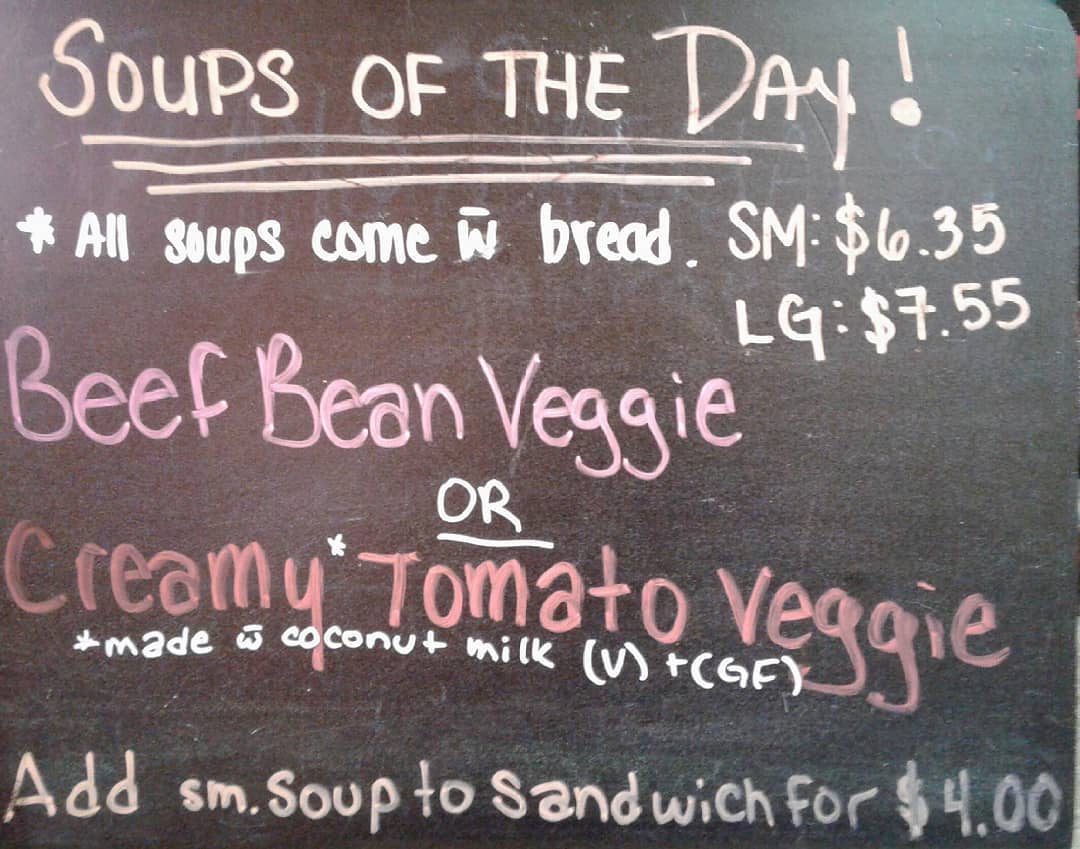 SOUPS OF THE DAY!
* All soups come w̄ bread. SM: $6.35
LG: $7.55
Beef Bean Veggie
OR
Creamy* Tomato Veggie
*made w̄ coconut milk (V) + (GF)
Add sm. Soup to Sandwich for $4.00